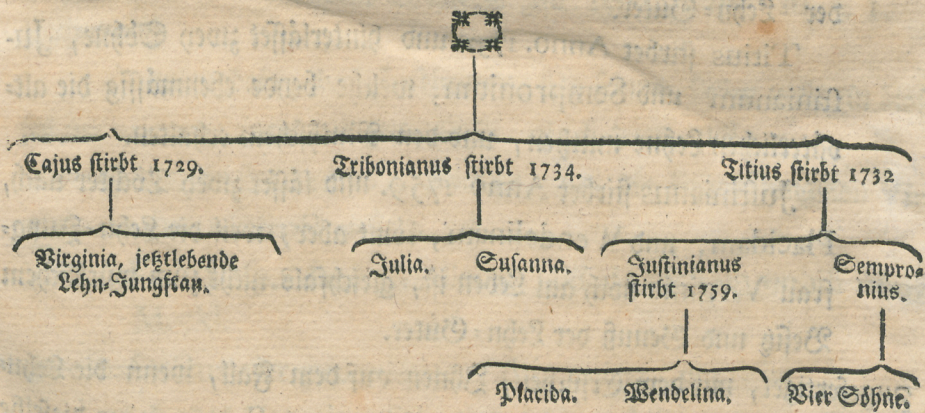 Cajus stirbt 1729.
Tribonianus stirbt 1734.
Titius stirbt 1732
Virginia, jetztlebende
Lehn-Jungfrau.
Julia.
Susanna.
Justinianus
stirbt 1759.
Sempro-
nius.
Placida.
Wendelina.
Vier Söhne.